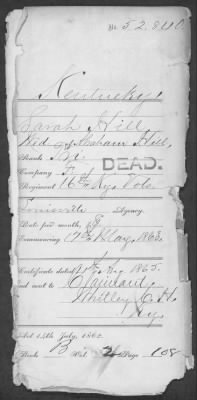 No. 52.840.
Kentucky
Sarah Hill
Wid. of Abraham Hill
Rank Pri.
DEAD.
Company
Regiment Ky. Vols.
Louisville Agency.
Rate per month, $8
Commencing May, 1863
Certificate dated 1865.
and sent to
Whitley C. H.
Ky.
Act 14th July, 1862.
Book B Vol. 2 Page 108